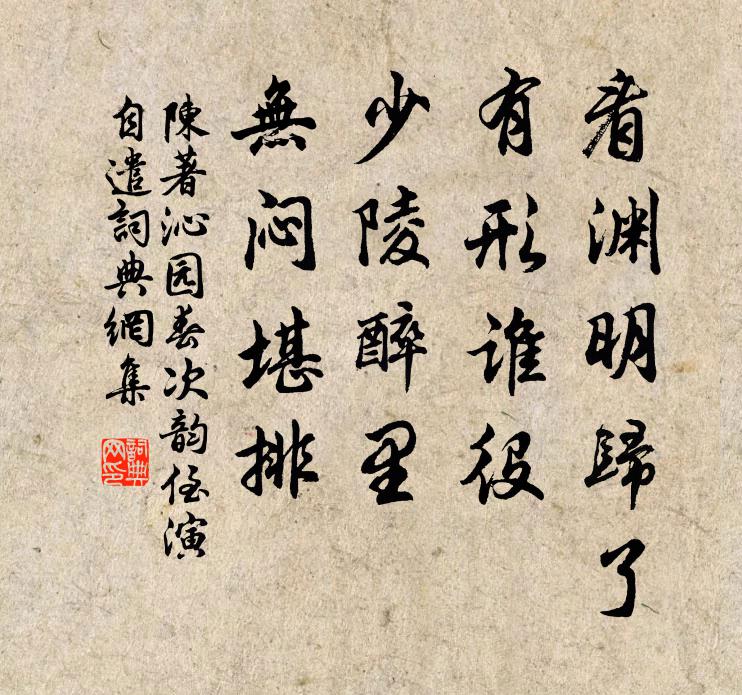 看渊明歸了
有形谁役
少陵醉里
無闷堪排
陳著沁园春次韵侄演
自遣詞典網集
詞典网印